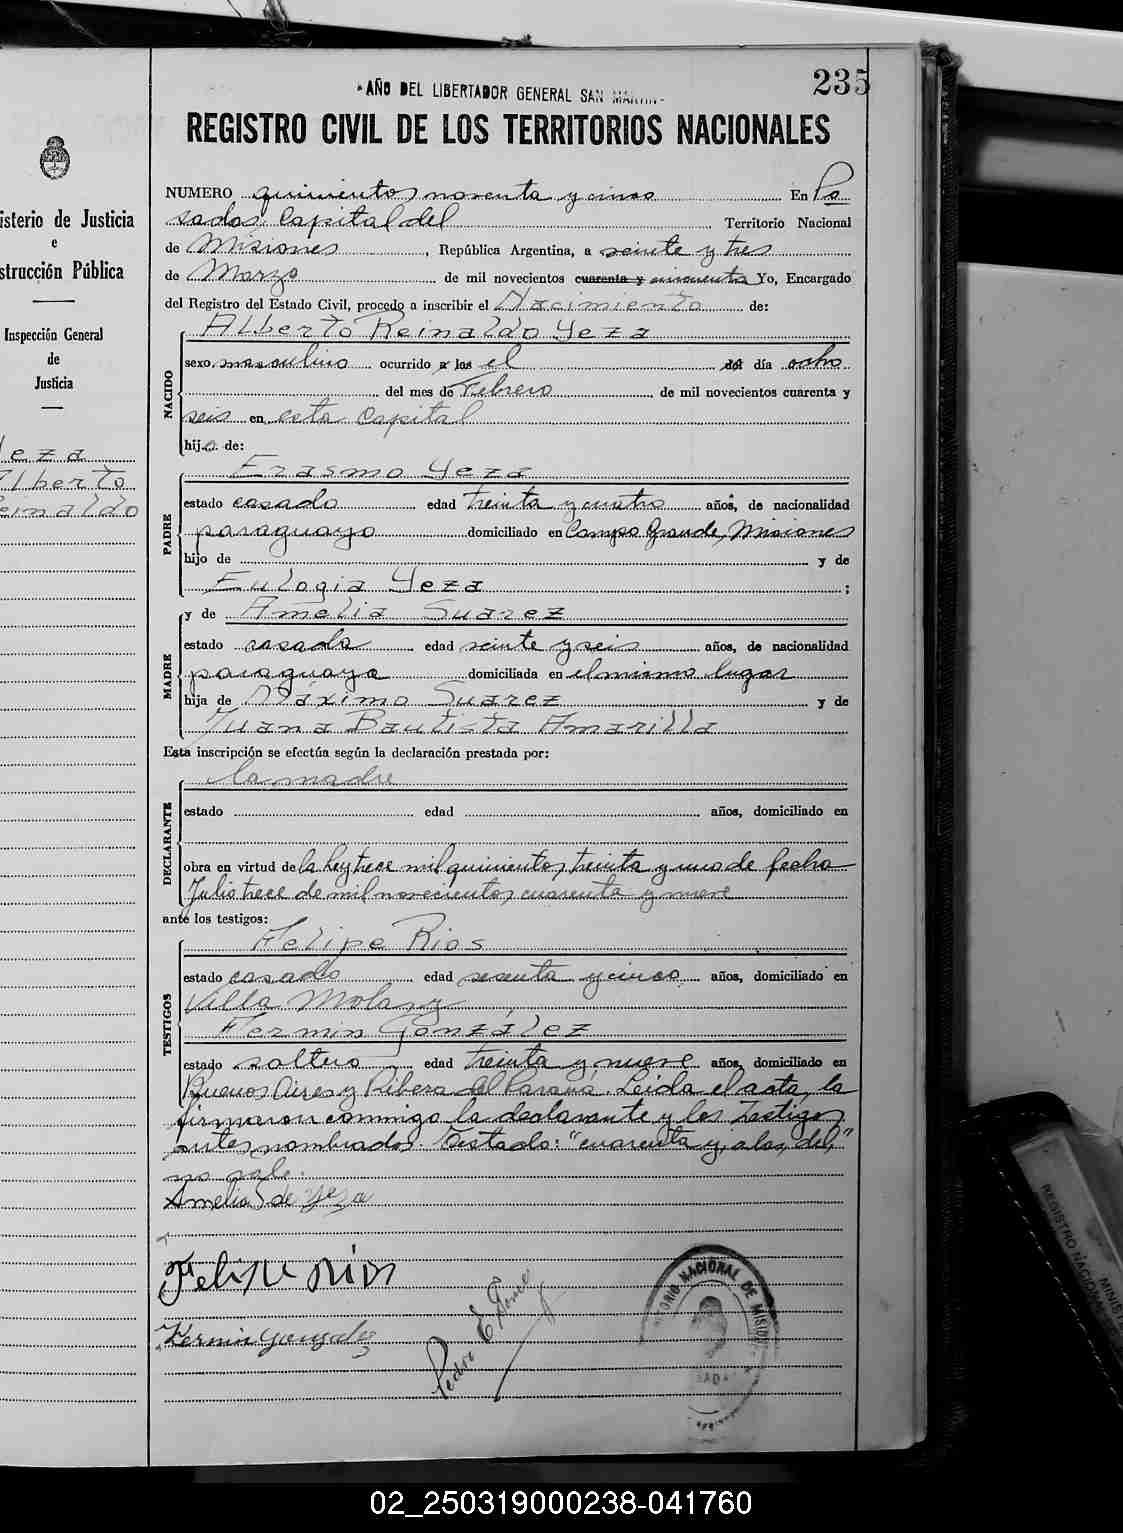 235
"AÑO DEL LIBERTADOR GENERAL SAN MARTIN"
REGISTRO CIVIL DE LOS TERRITORIOS NACIONALES
isterio de Justicia
e
strucción Pública
Inspección General
de
Justicia
Yeza
Alberto
einaldo
NUMERO quinientos noventa y cinco En Po
sadas, Capital del Territorio Nacional
de Misiones, República Argentina, a veinte y tres
de Marzo de mil novecientos cuarenta y cincuenta Yo, Encargado
del Registro del Estado Civil, procedo a inscribir el Nacimiento de:
NACIDO
Alberto Reinaldo Yeza
sexo masculino ocurrido a las el del día ocho
del mes de Febrero de mil novecientos cuarenta y
seis en esta Capital
hijo de:
PADRE
Erasmo Yeza
estado casado edad treinta y cuatro años, de nacionalidad
paraguayo domiciliado en Campo Grande, Misiones
hijo de y de
Eulogia Yeza ;
MADRE
y de Amelia Suarez
estado casada edad veinte y seis años, de nacionalidad
paraguaya domiciliada en el mismo lugar
hija de Máximo Suarez y de
Juana Bautista Amarilla
Esta inscripción se efectúa según la declaración prestada por:
DECLARANTE
la madre
estado edad años, domiciliado en
obra en virtud de la Ley trece mil quinientos treinta y uno de fecha
Julio trece de mil novecientos cuarenta y nueve
ante los testigos:
TESTIGOS
Felipe Rios
estado casado edad sesenta y cinco años, domiciliado en
Villa Mola y
Fermin González
estado soltero edad treinta y nueve años, domiciliado en
Buenos Aires y Ribera del Paraná. Leída el acta, la
firmaron conmigo la declarante y los Testigos
antes nombrados. Testado: "cuarenta y, a las, del,"
no vale.
Amelia S de Yeza
Felipe Rios
Fermin Gonzalez
Pedro E
TORIO NACIONAL DE MISIONES
REGISTRO NACIONAL
MINIST
02_250319000238-041760